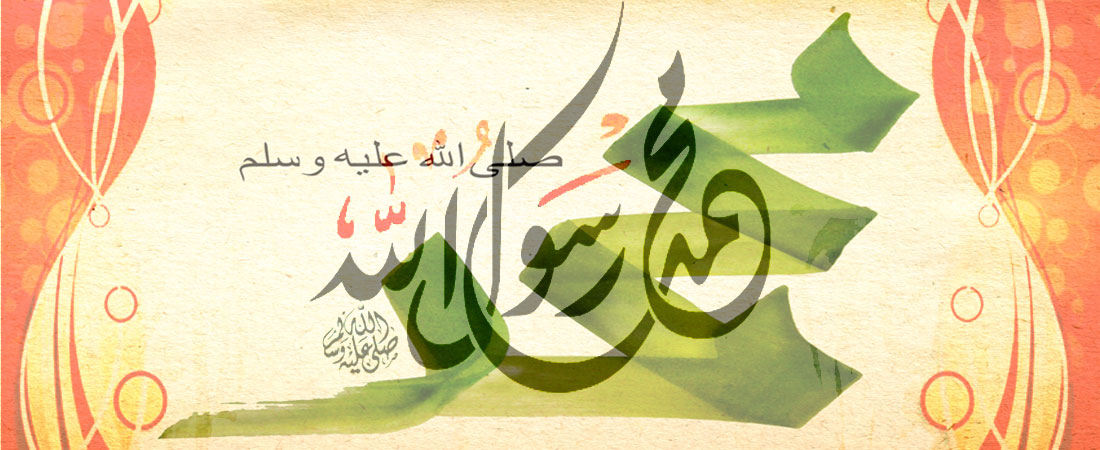 صلى الله عليه وسلم
محمد رسول الله
صلى الله عليه وسلم
محمد